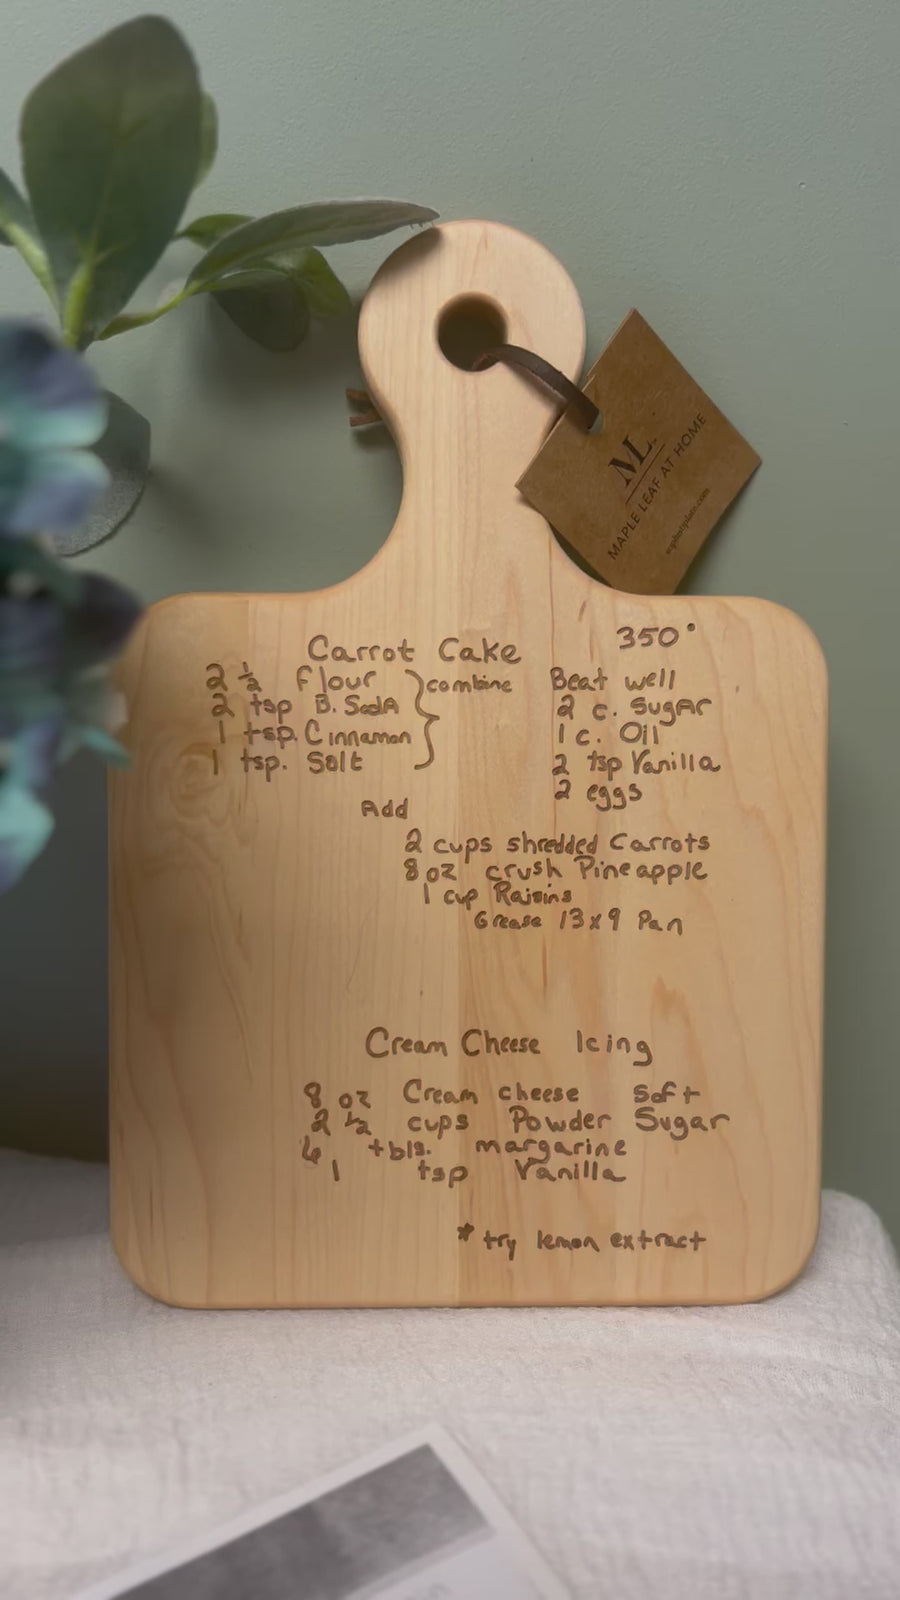 ML
MAPLE LEAF AT HOME
Carrot Cake 350°
2 ½ flour } combine
2 tsp B. SodA
1 tsp. Cinnamon
1 tsp. Salt
Beat well
2 c. SugAr
1 c. Oil
2 tsp Vanilla
2 eggs
Add
2 cups shredded Carrots
8 oz crush Pineapple
1 cup Raisins
Grease 13x9 Pan
Cream Cheese Icing
8 oz Cream cheese soft
2 ½ cups Powder Sugar
6 tbls. margarine
1 tsp Vanilla
* try lemon extract